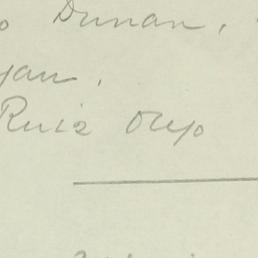 o Dunan,
yan.
Ruiz Oejo